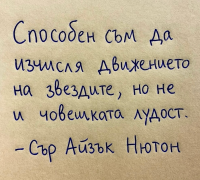 Способен съм да
изчисля движението
на звездите, но не
и човешката лудост.
- Сър Айзък Нютон